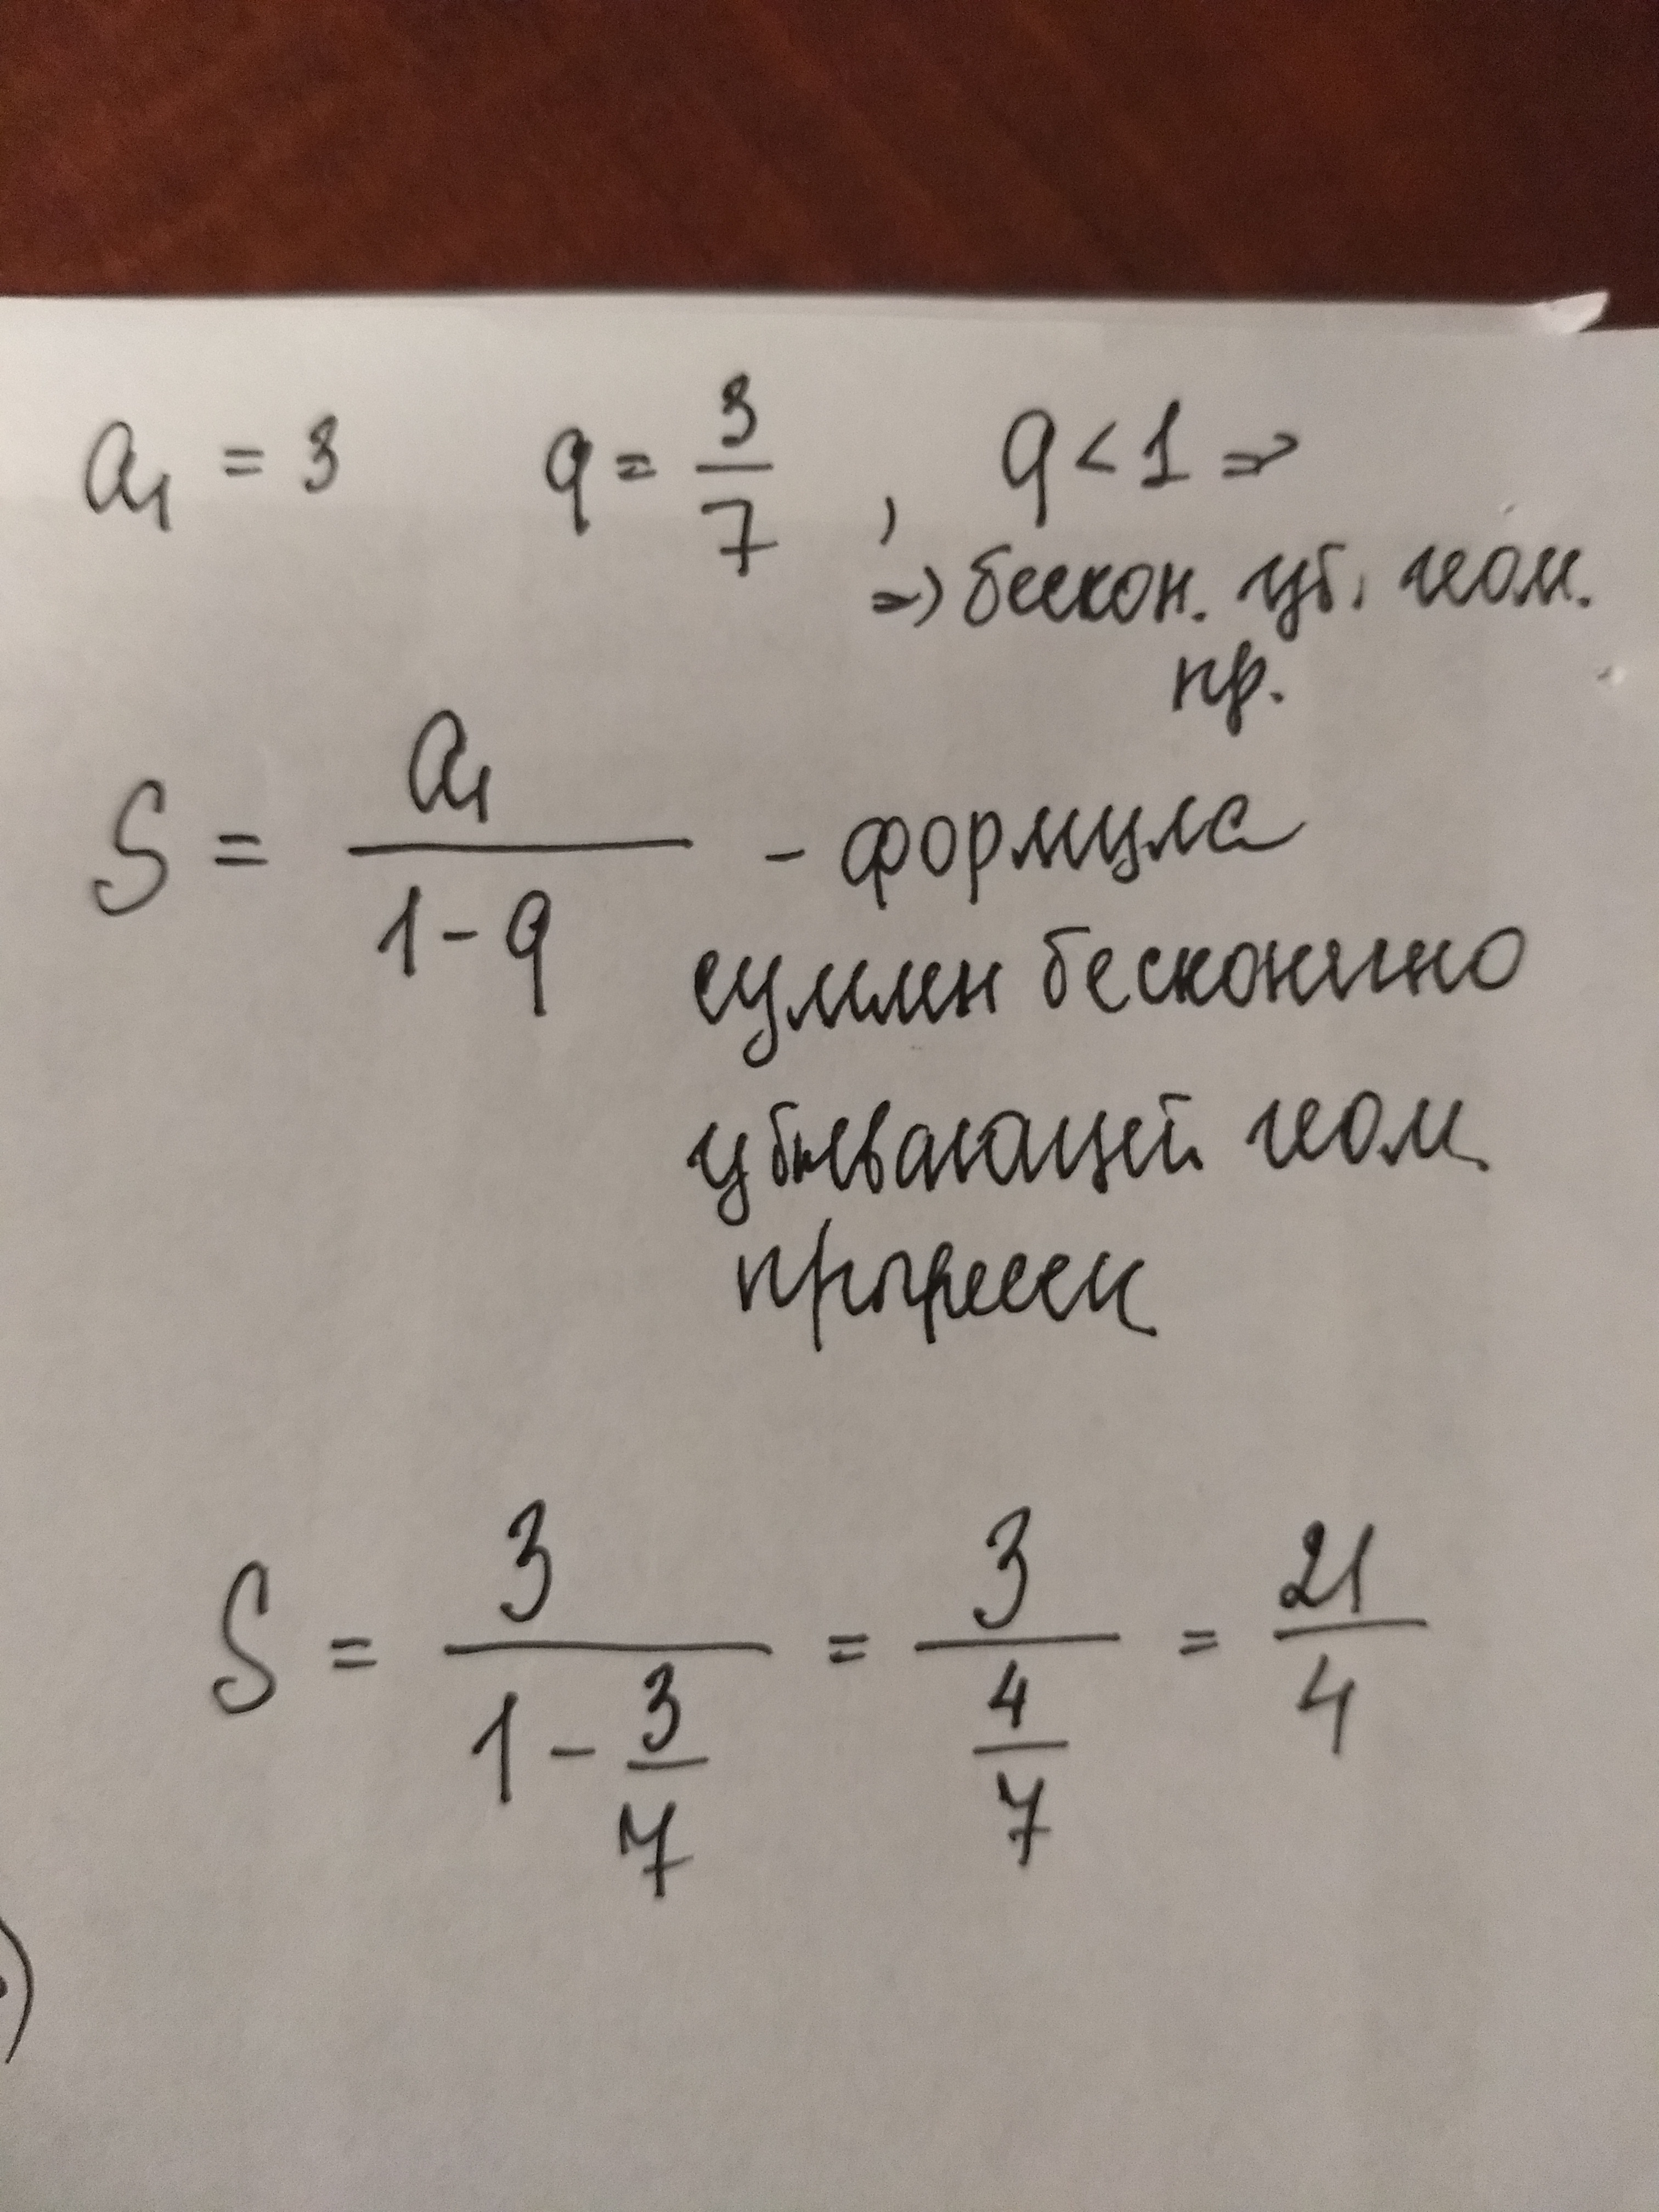 a₁ = 3 q = 3/7 , q < 1 ⇒
⇒ бескон. уб. геом.
пр.
S = a₁/(1 - q) - формула
суммы бесконечно
убывающей геом.
прогресси
S = 3/(1 - 3/7) = 3/(4/7) = 21/4
)